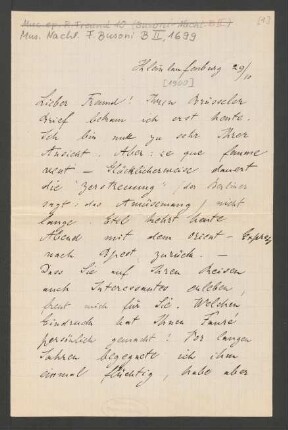 Mus. Nachl. F. Busoni B II, 1699
[1]
Kleinlaufenburg 29/10
[1900]
Lieber Freund! Ihren Brüsseler
Brief bekam ich erst heute.
Ich bin nur zu sehr Ihrer
Ansicht. Aber: ce que femme
veut — Glücklicherweise dauert
die "Zerstreuung" (der Berliner
sagt: das Amüsemang) nicht
lange. Etel kehrt heute
Abend mit dem Orient-Express
nach Bpest zurück. —
Dass Sie auf Ihren Reisen
auch Interessantes erleben,
freut mich für Sie. Welchen
Eindruck hat Ihnen Fauré
persönlich gemacht? Vor langen
Jahren begegnete ich ihm
einmal flüchtig, habe aber